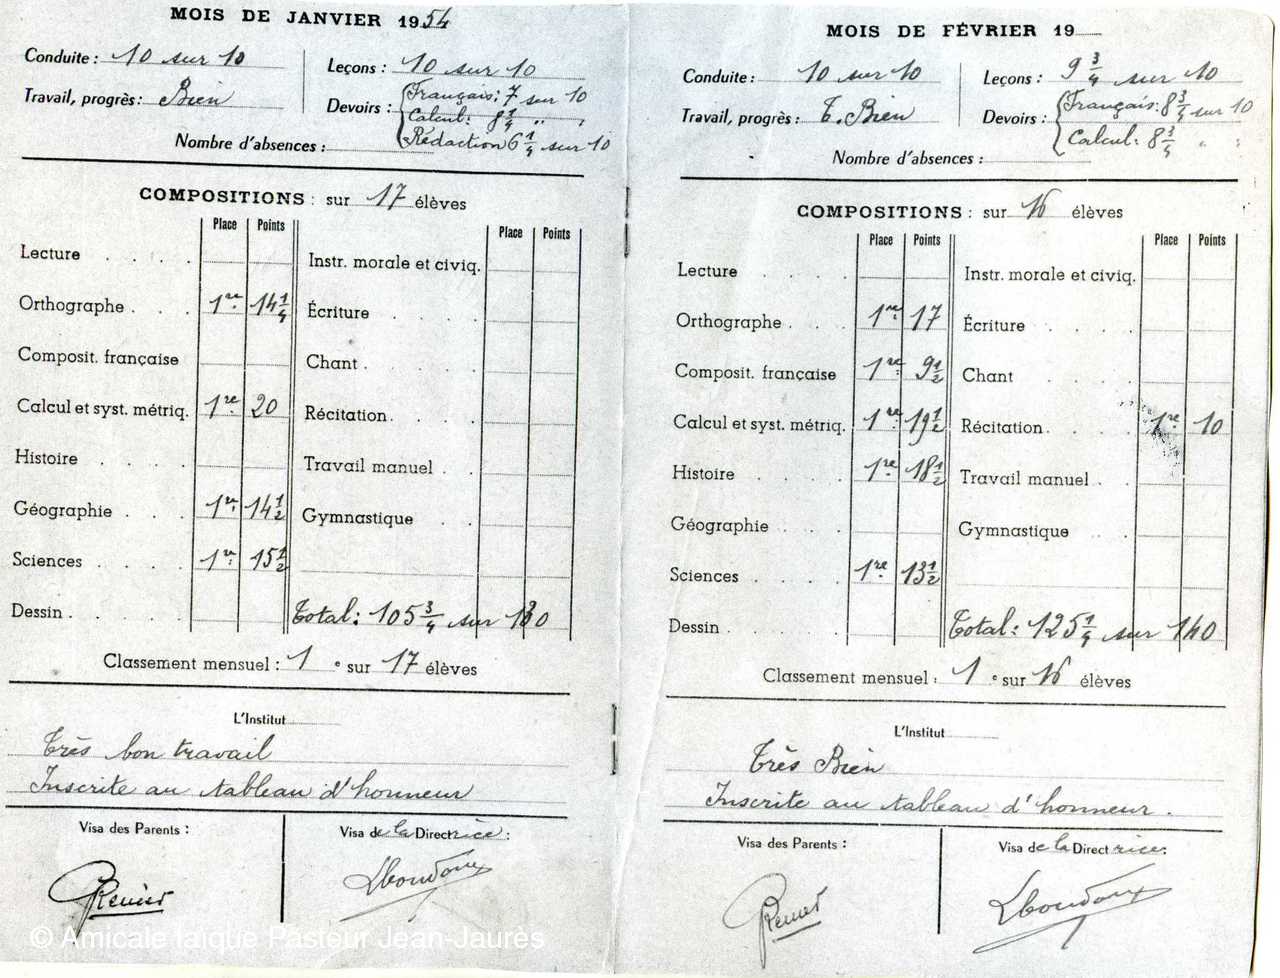 MOIS DE JANVIER 1954
Conduite : 10 sur 10
Leçons : 10 sur 10
Travail, progrès : Bien
Devoirs : Français : 7 sur 10
Calcul : 8 1/4 " :
Rédaction 6 1/4 sur 10
Nombre d'absences :
COMPOSITIONS : sur 17 élèves
Place Points Place Points
Lecture Instr. morale et civiq.
Orthographe 1re 14 1/4 Écriture
Composit. française Chant
Calcul et syst. métriq. 1re 20 Récitation
Histoire Travail manuel
Géographie 1re 14 1/2 Gymnastique
Sciences 1re 15 1/2
Dessin Total : 105 3/4 sur 130
Classement mensuel : 1 e sur 17 élèves
L'Institut
Très bon travail
Inscrite au tableau d'honneur
Visa des Parents : Visa de la Directrice :
Renier
MOIS DE FÉVRIER 19
Conduite : 10 sur 10
Leçons : 9 3/4 sur 10
Travail, progrès : T. Bien
Devoirs : Français : 8 3/4 sur 10
Calcul : 8 3/4 " :
Nombre d'absences :
COMPOSITIONS : sur 16 élèves
Place Points Place Points
Lecture Instr. morale et civiq.
Orthographe 1re 17 Écriture
Composit. française 1re 9 1/2 Chant
Calcul et syst. métriq. 1re 19 1/2 Récitation 1re 10
Histoire 1re 18 1/2 Travail manuel
Géographie Gymnastique
Sciences 1re 13 1/2
Dessin Total : 125 1/4 sur 140
Classement mensuel : 1 e sur 16 élèves
L'Institut
Très Bien
Inscrite au tableau d'honneur.
Visa des Parents : Visa de la Directrice :
Renier
© Amicale laïque Pasteur Jean-Jaurès